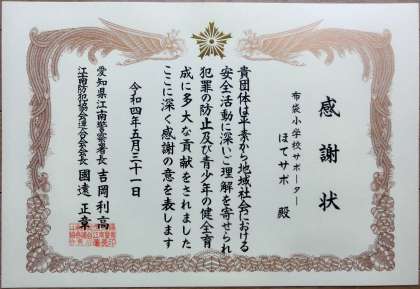 感謝状
布袋小学校サポーター
ほてサポ 殿
貴団体は平素から地域社会における
安全活動に深いご理解を寄せられ
犯罪の防止及び青少年の健全育
成に多大な貢献をされました
ここに深く感謝の意を表します
令和四年五月三十一日
愛知県江南警察署長 吉岡利高
江南防犯協会連合会会長 國遠正章